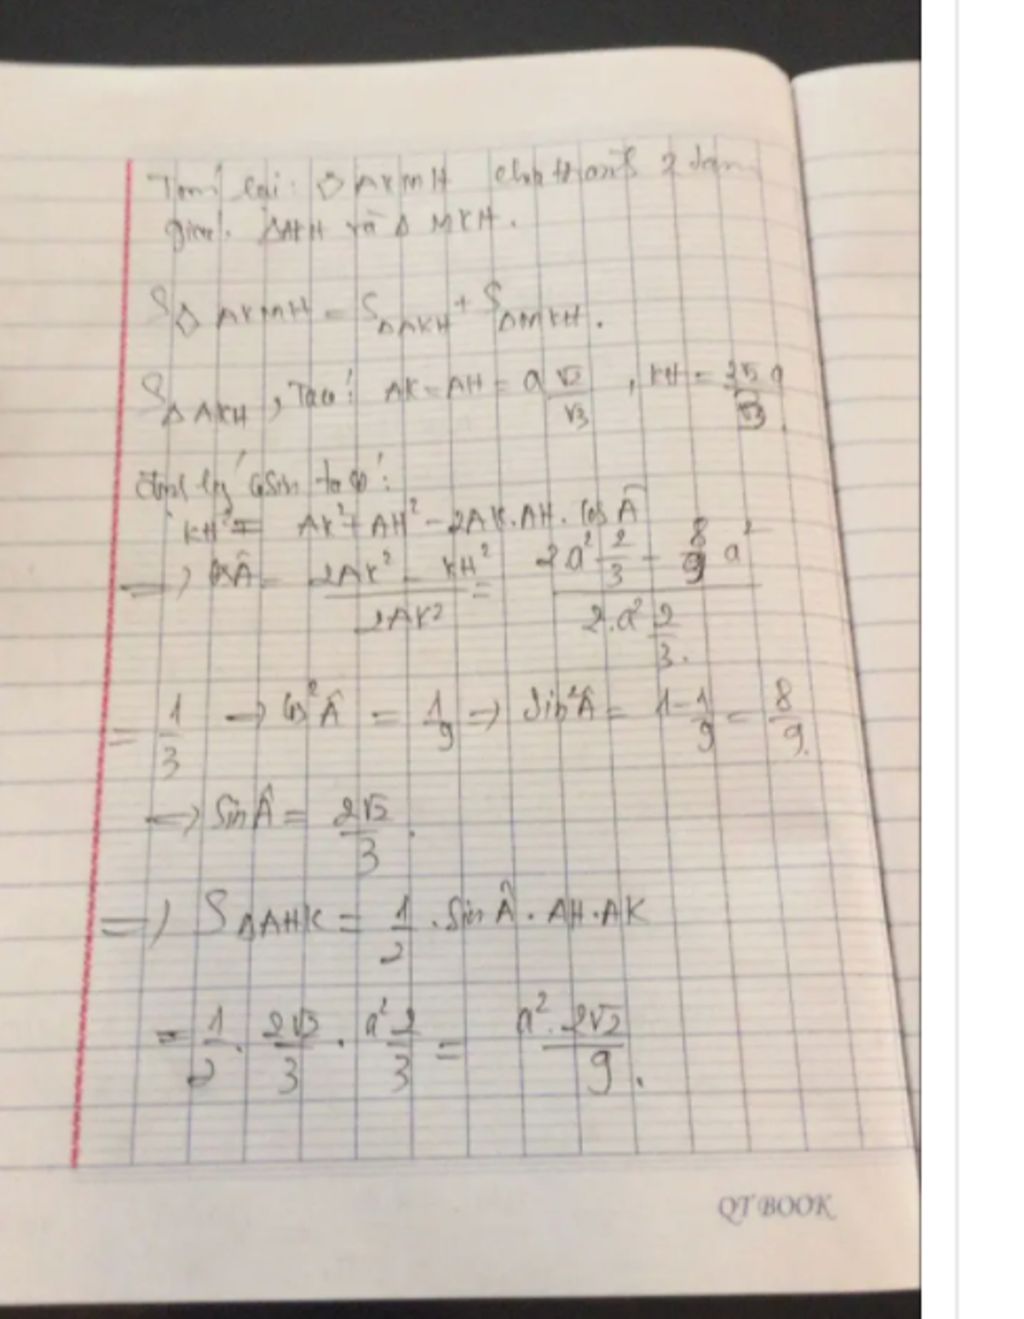 Tóm lại: ◊ AKMH chia thành 2 tam
giác. ΔAKH và Δ MKH.
S◊ AKMH = SΔAKH + SΔMKH.
SΔAKH, Ta có: AK = AH = a √2/√3, KH =
định lý cosin ta có:
KH² = AK² + AH² - 2AK.AH. cos Â
=> cos Â = (2AK² - KH²)/(2AK²) = (2a² 2/3 - 8/9 a²)/(2.a² 2/3).
= 1/3 → cos² Â = 1/9 → sin² Â = 1 - 1/9 = 8/9.
=> sin Â = 2√2/3.
=> SΔAHK = 1/2 . sin Â . AH . AK
= 1/2 . 2√2/3 . a² 2/3 = a². 2√2/9.
QT BOOK